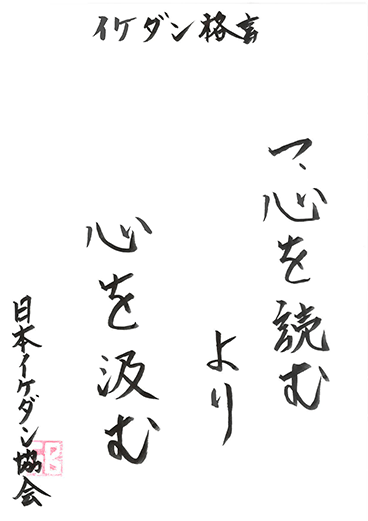 イケダン格言
一、心を読む
より
心を汲む
日本イケダン協会